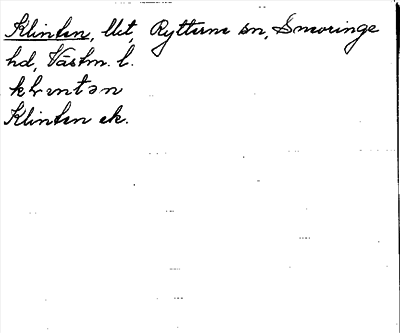 Klinten, lht, Rytterne sn, Snevringe
hd, Västm. l.
Klinten ek.